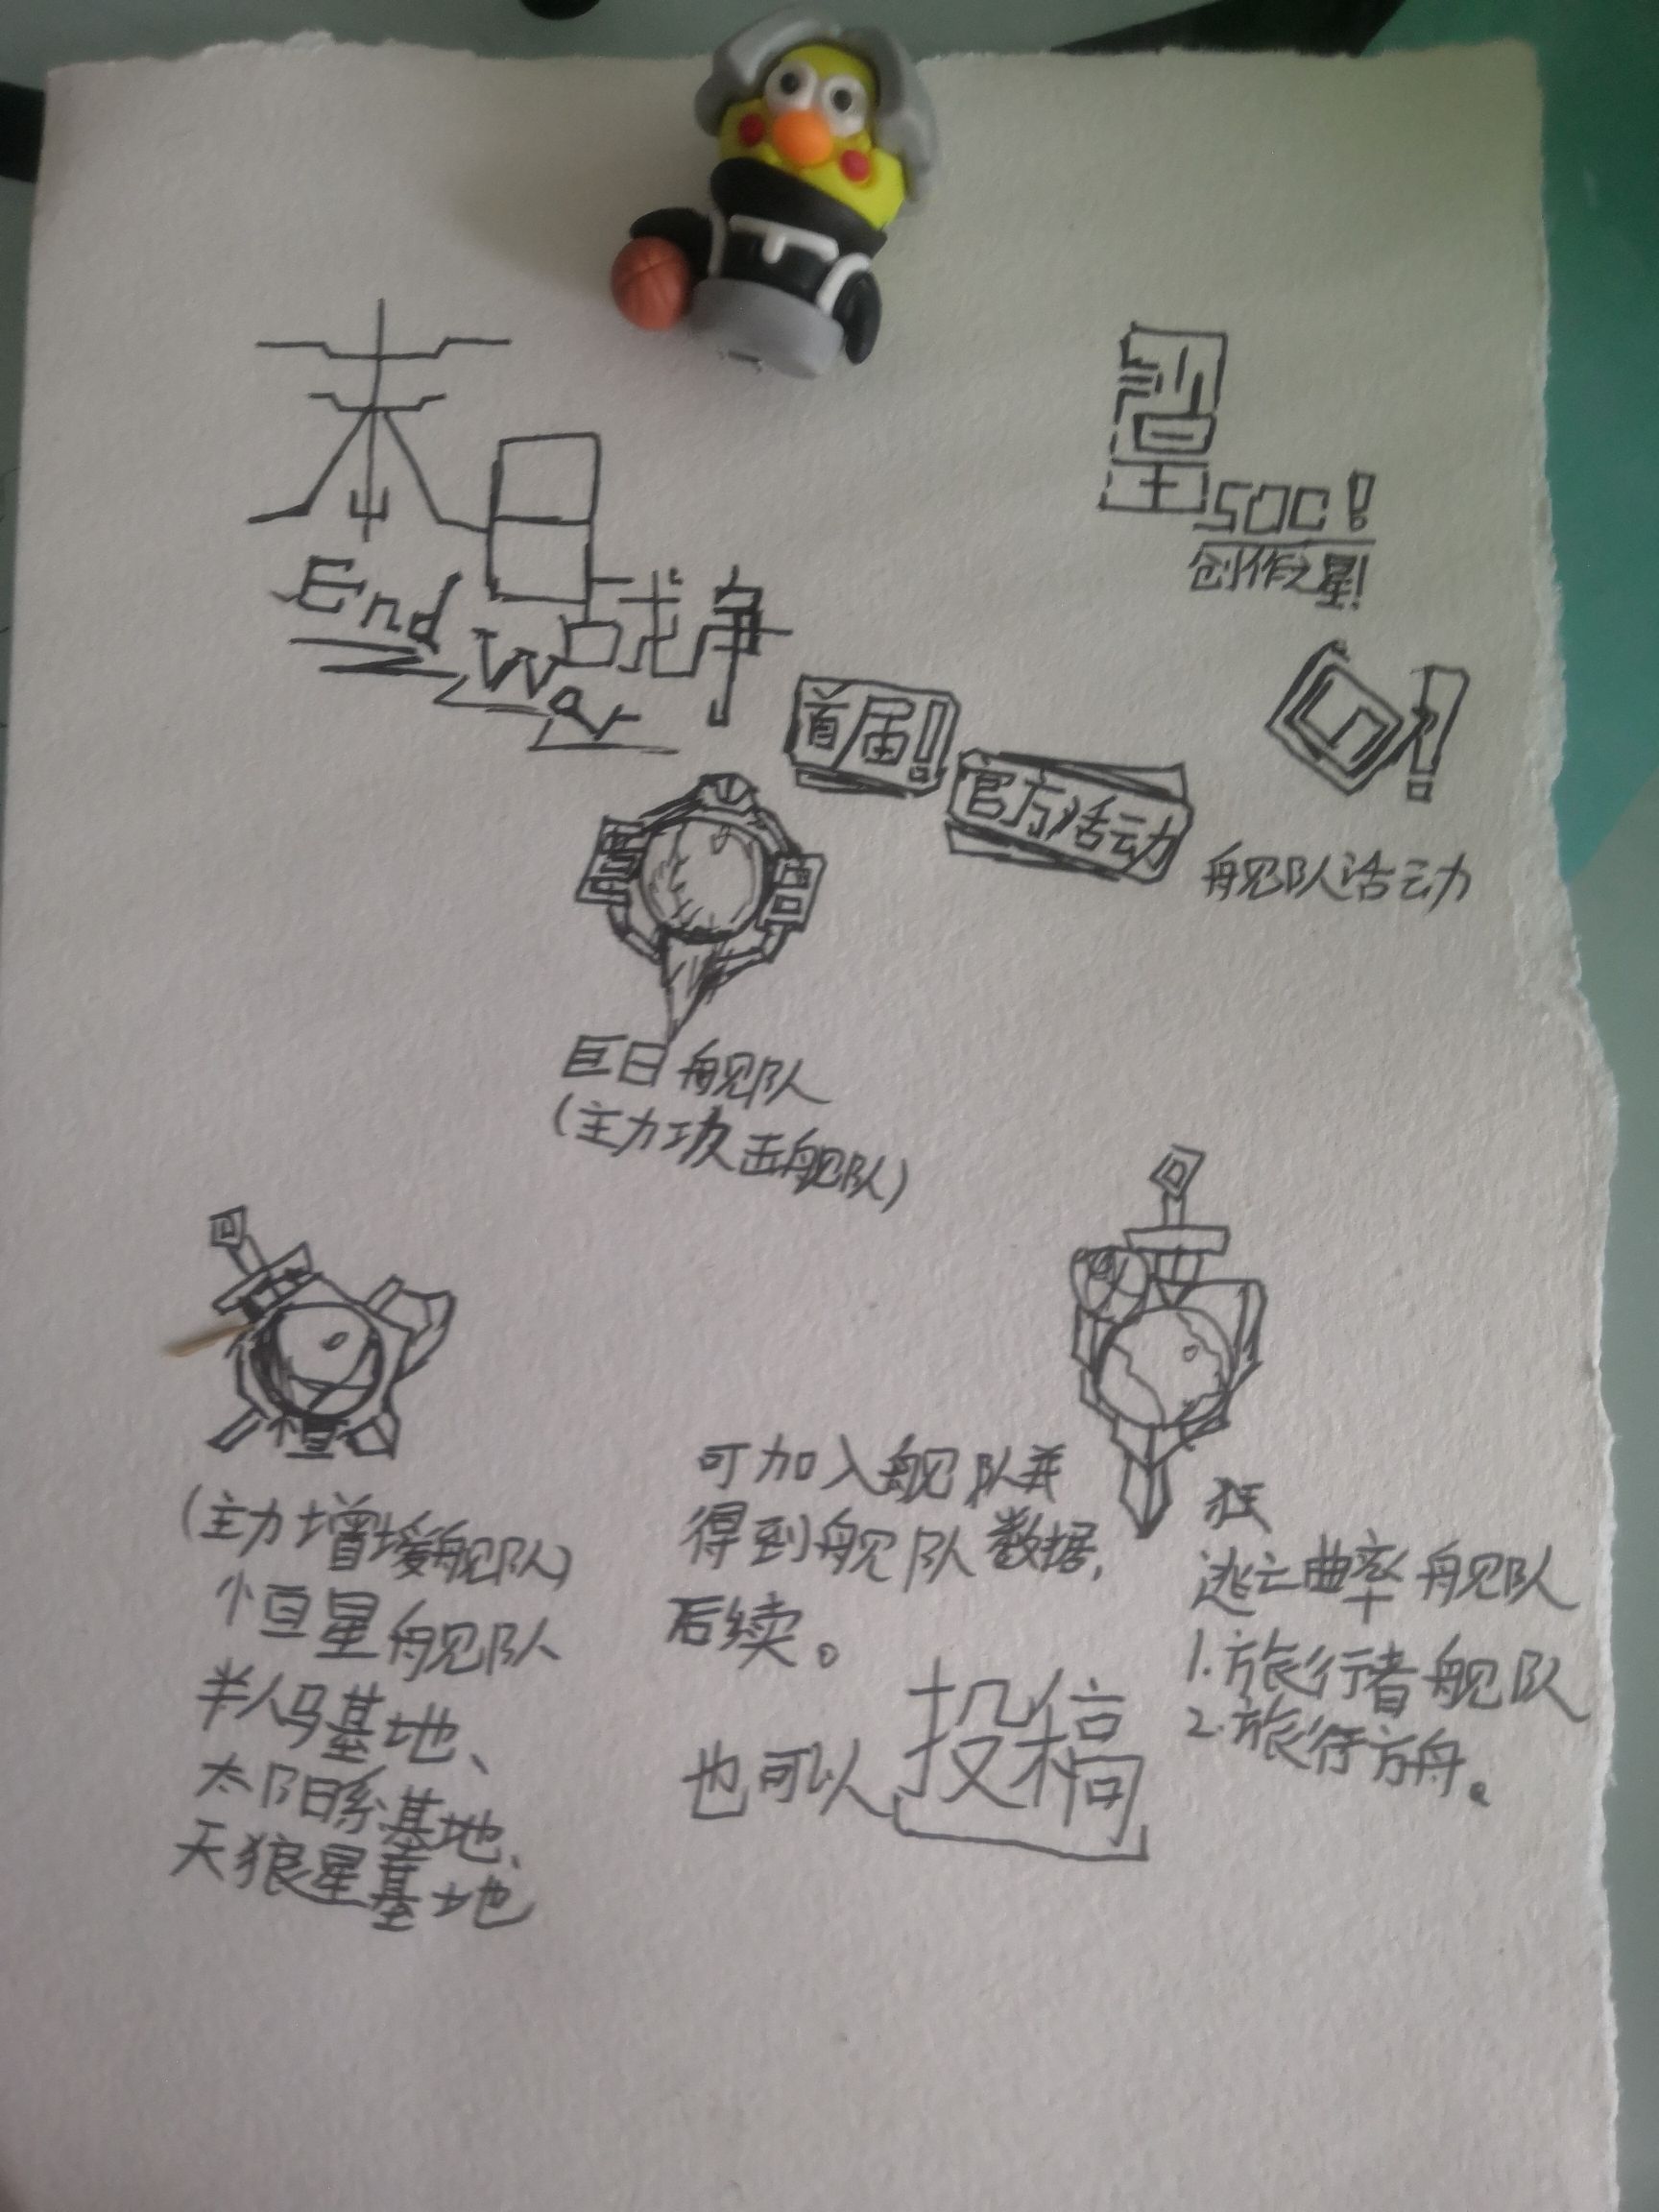 末日战争
End War
SOC!
创作之星!
首届!
官方活动
舰队活动
巨日舰队
(主力攻击舰队)
恒
(主力增援舰队)
恒星舰队
半人马基地、
太阳系基地、
天狼星基地
可加入舰队并
得到舰队数据,
后续。
也可以投稿
逃亡曲率舰队
1.旅行者舰队
2.旅行方舟。